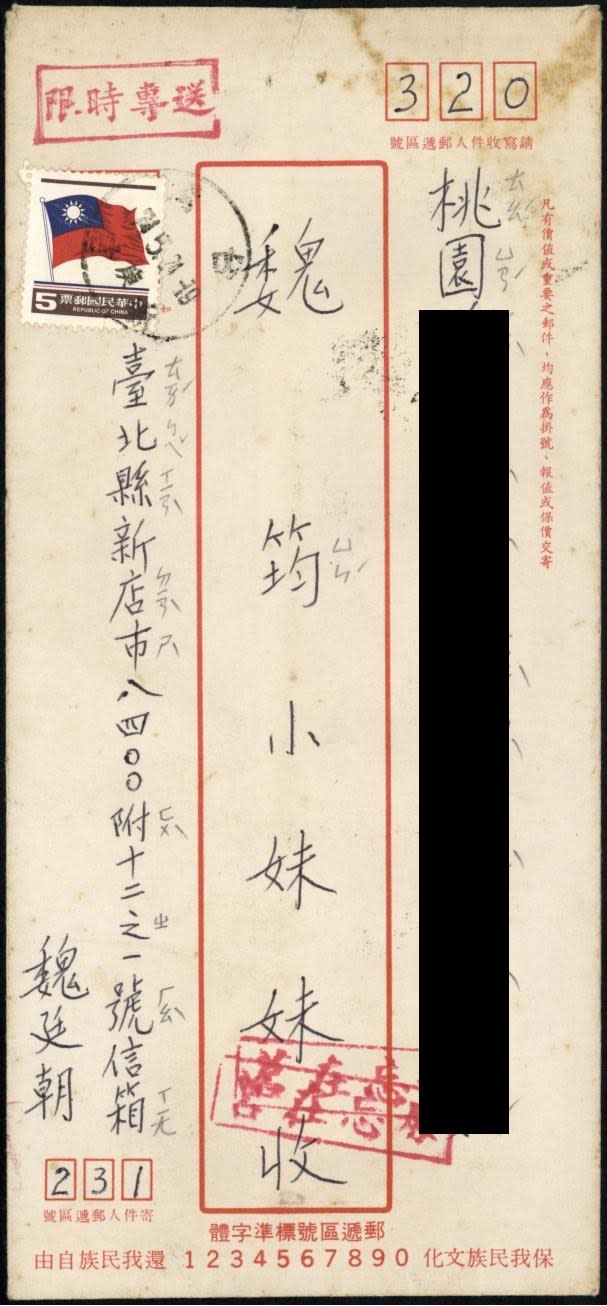 限時專送
320
請寫收件人郵遞區號
凡有價值或重要之郵件，均應作為掛號、報值或保價交寄
桃園
ㄊㄠˊ
ㄩㄢˊ
魏筠小妹妹收
ㄩㄣˊ
中華民國郵票
REPUBLIC OF CHINA
5
臺北縣新店市八四〇〇附十二之一號信箱
ㄊㄞˊ
ㄅㄟˇ
ㄒㄧㄢˋ
ㄉㄧㄢˋ
ㄕˋ
ㄈㄨˋ
ㄓ
ㄏㄠˋ
ㄒㄧㄤ
魏廷朝
231
寄件人郵遞區號
郵遞區號標準字體
保我民族文化 1234567890 還我民族自由